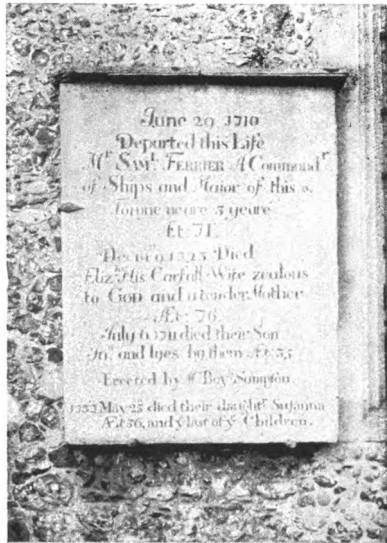 June 29 1710
Departed this Life
Mr. SAMl. FERRIER A Commandr
of Ships and Maior of this
Towne neare 3 yeare
Æt 71
Died
Elizth His Carfull Wife zealous
to GOD and a tender Mother
Æt: 76
July 6 1711 died their Son
and lyes by them Æt: 35
Erected by Sompton.
May 25 died their daught Susanna
Æt 56, and ye last of ye Children.